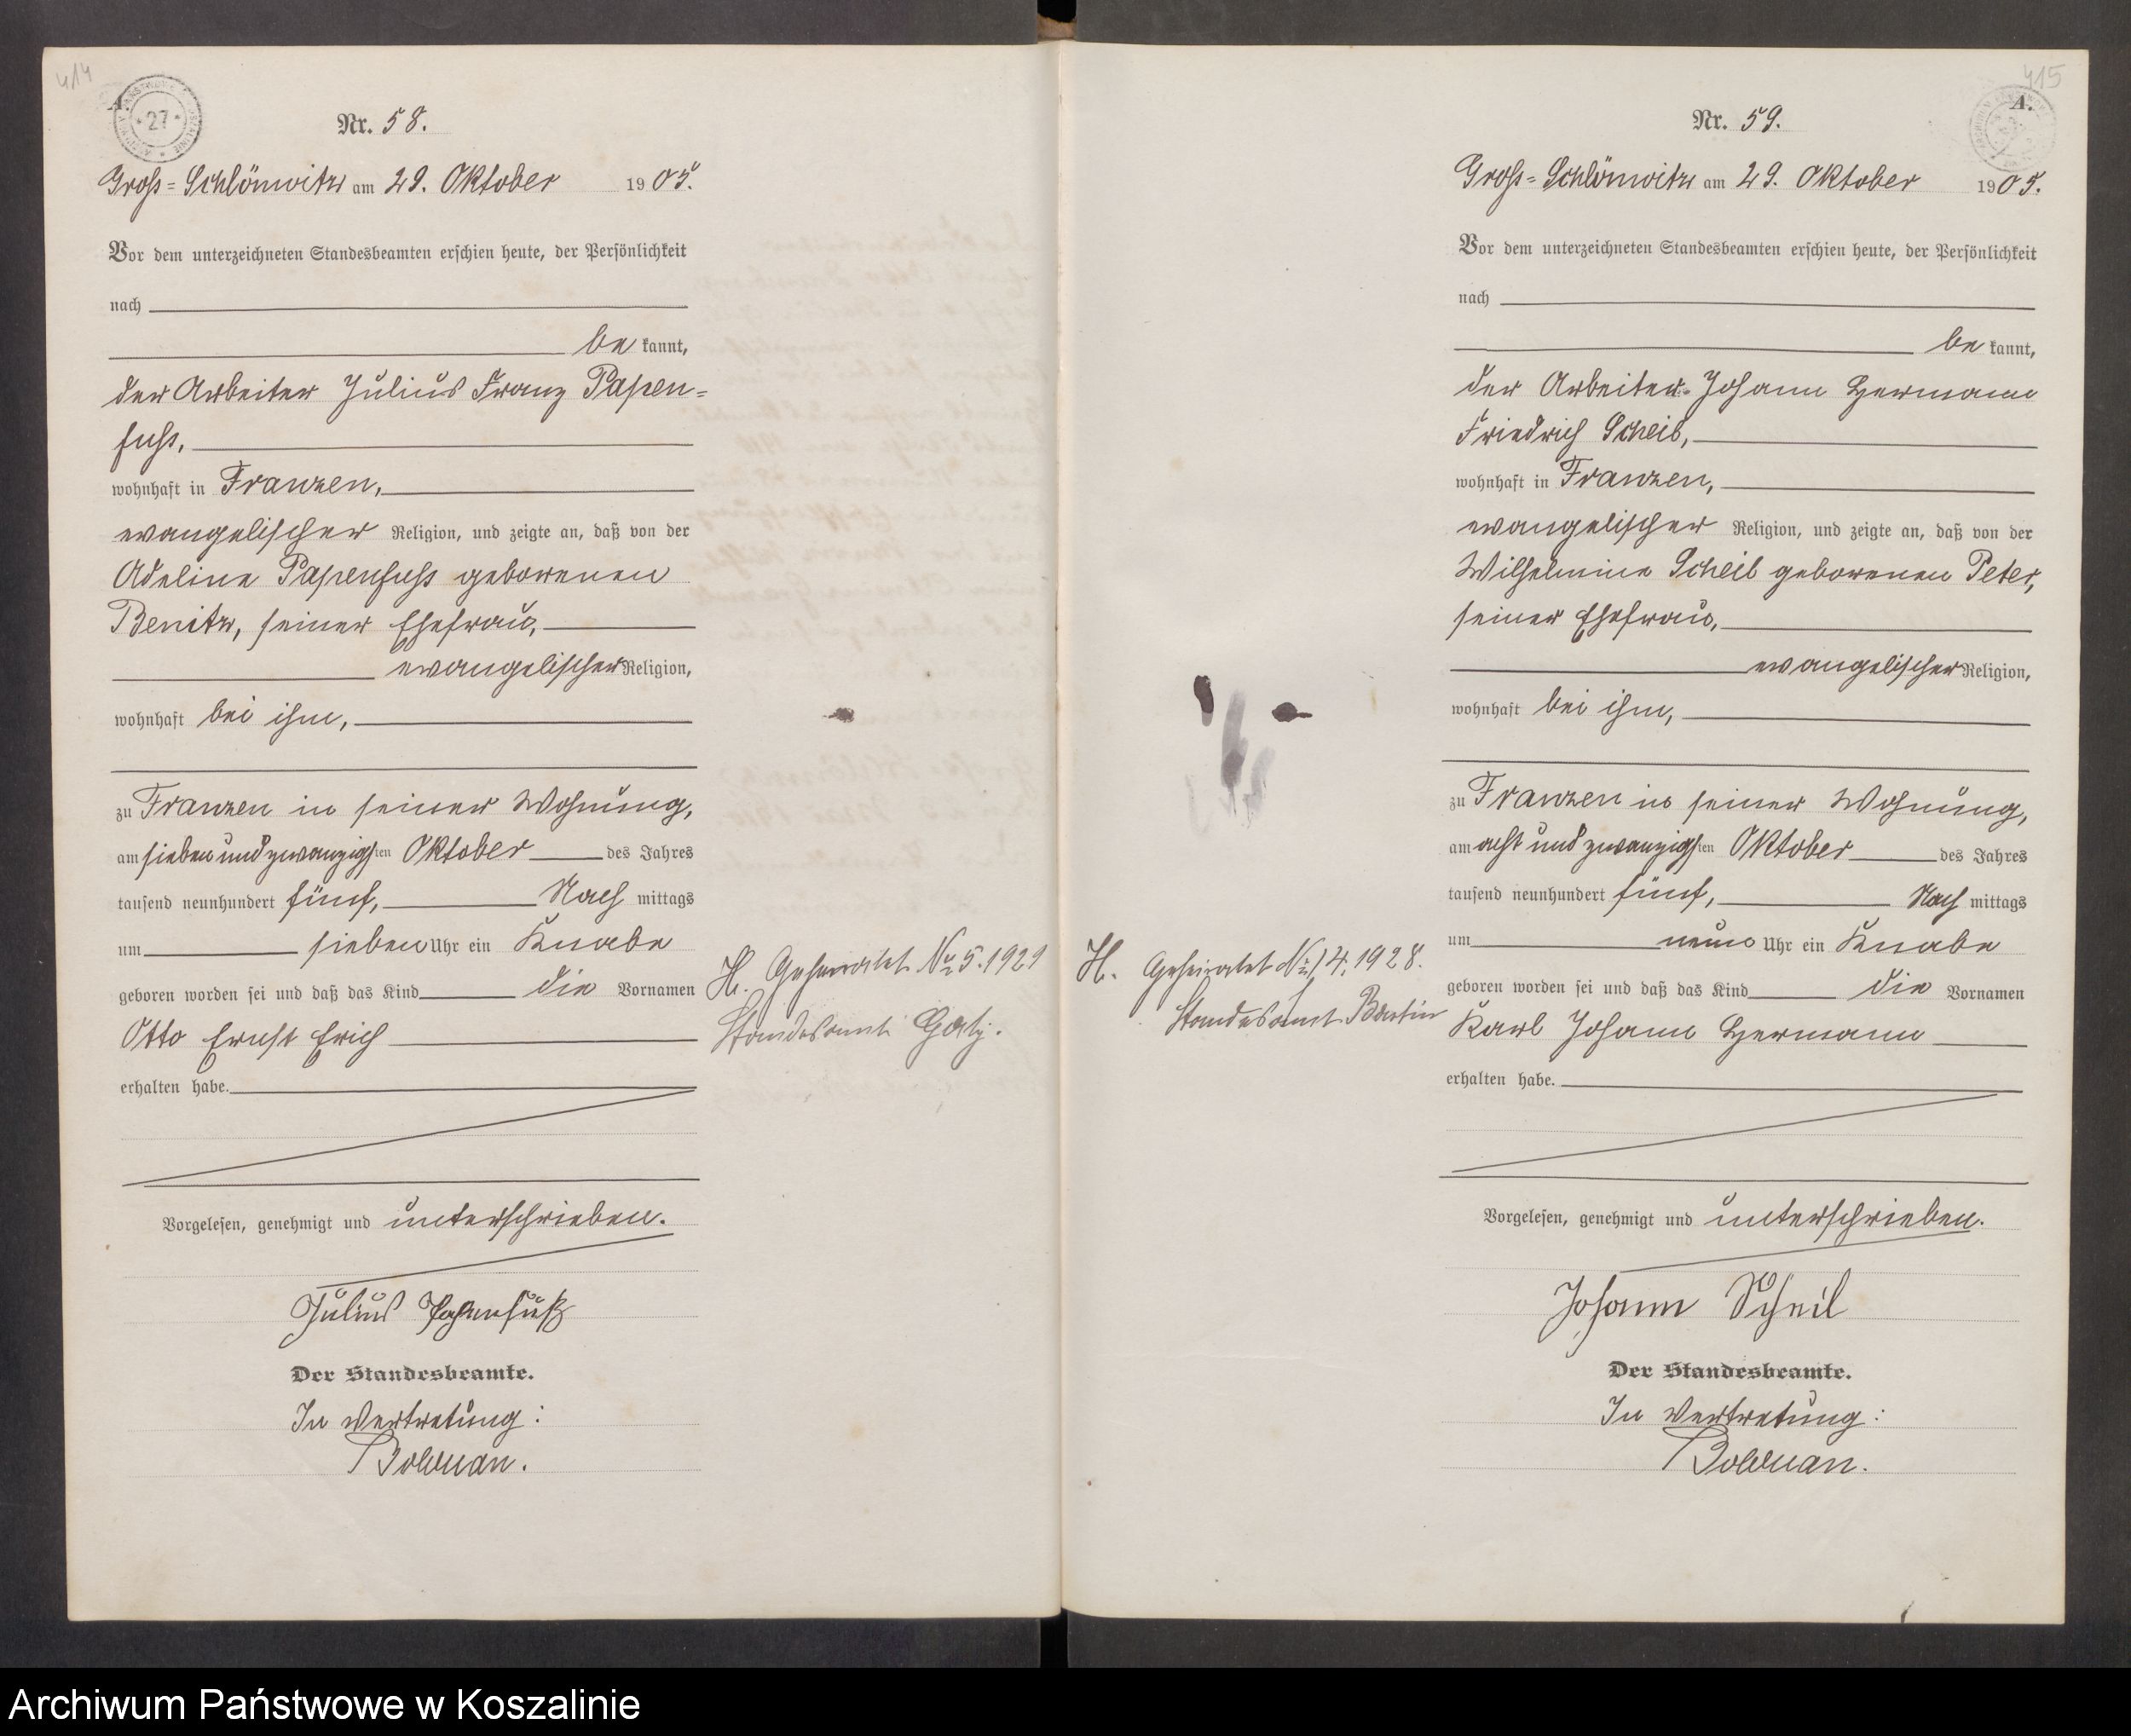 414
A.
27
Nr. 58.
Gross-Schlönwitz am 29. Oktober 1905.
Vor dem unterzeichneten Standesbeamten erschien heute, der Persönlichkeit
nach
be kannt,
der Arbeiter Julius Franz Papen-
fuss,
wohnhaft in Franzen,
evangelischer Religion, und zeigte an, daß von der
Adeline Papenfuss geborenen
Benitz, seiner Ehefrau,
evangelischer Religion,
wohnhaft bei ihm,
zu Franzen in seiner Wohnung,
am sieben und zwanzigsten Oktober des Jahres
tausend neunhundert fünf, Nach mittags
um sieben Uhr ein Knabe
geboren worden sei und daß das Kind die Vornamen
Otto Ernst Erich
erhalten habe.
Vorgelesen, genehmigt und unterschrieben.
Julius Papenfuß
Der Standesbeamte.
In Vertretung:
Bolduan.
H. Geheiratet Nr 5. 1929
Standesamt Gatz.
415
A.
Nr. 59.
Gross-Schlönwitz am 29. Oktober 1905.
Vor dem unterzeichneten Standesbeamten erschien heute, der Persönlichkeit
nach
be kannt,
der Arbeiter Johann Hermann
Friedrich Scheil,
wohnhaft in Franzen,
evangelischer Religion, und zeigte an, daß von der
Wilhelmine Scheil geborenen Peter,
seiner Ehefrau,
evangelischer Religion,
wohnhaft bei ihm,
zu Franzen in seiner Wohnung,
am acht und zwanzigsten Oktober des Jahres
tausend neunhundert fünf, Nach mittags
um neun Uhr ein Knabe
geboren worden sei und daß das Kind die Vornamen
Karl Johann Hermann
erhalten habe.
Vorgelesen, genehmigt und unterschrieben.
Johann Scheil
Der Standesbeamte.
In Vertretung:
Bolduan.
H. Geheiratet Nr 14. 1928.
Standesamt Bartin
Archiwum Państwowe w Koszalinie